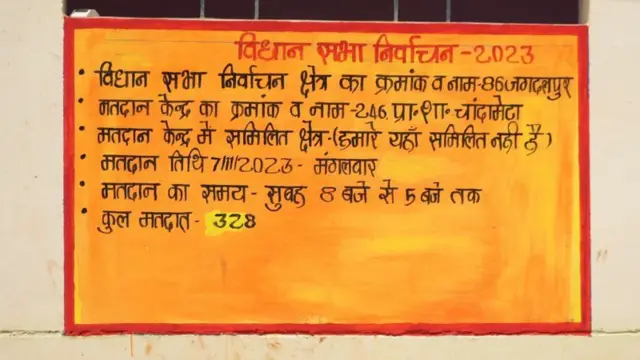 विधान सभा निर्वाचन-2023
• विधान सभा निर्वाचन क्षेत्र का क्रमांक व नाम-86 जगदलपुर
• मतदान केन्द्र का क्रमांक व नाम-246. प्रा॰शा॰ चांदामेटा
• मतदान केन्द्र में समिलित क्षेत्र-(हमारे यहाँ समिलित नही है)
• मतदान तिथि 7/11/2023- मंगलवार
• मतदान का समय- सुबह 8 बजे से 5 बजे तक
• कुल मतदात्- 328